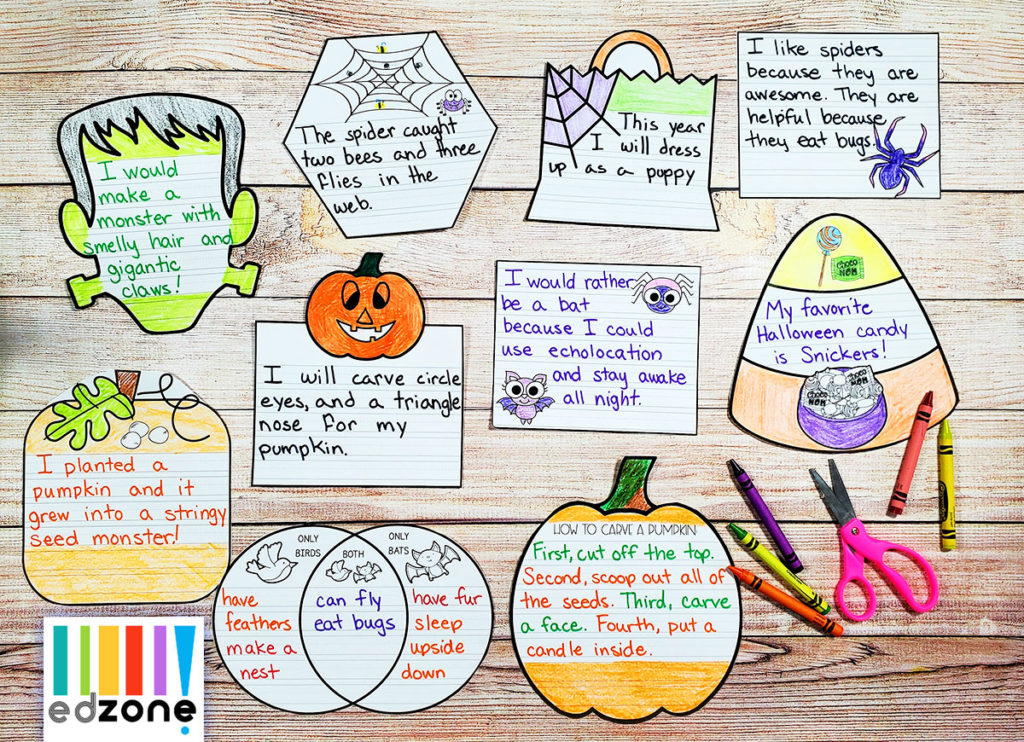 I would
make a
monster with
smelly hair and
gigantic
claws!
The spider caught
two bees and three
flies in the
web.
This year
I will dress
up as a puppy
I like spiders
because they are
awesome. They are
helpful because
they eat bugs.
I will carve circle
eyes, and a triangle
nose for my
pumpkin.
I would rather
be a bat
because I could
use echolocation
and stay awake
all night.
CHOCO
NOM
My favorite
Halloween candy
is Snickers!
CHOCO
NOM
CHOCO
NOM
I planted a
pumpkin and it
grew into a stringy
seed monster!
ONLY
BIRDS
have
feathers
make a
nest
BOTH
can fly
eat bugs
ONLY
BATS
have fur
sleep
upside
down
HOW TO CARVE A PUMPKIN
First, cut off the top.
Second, scoop out all of
the seeds. Third, carve
a face. Fourth, put a
candle inside.
edzone